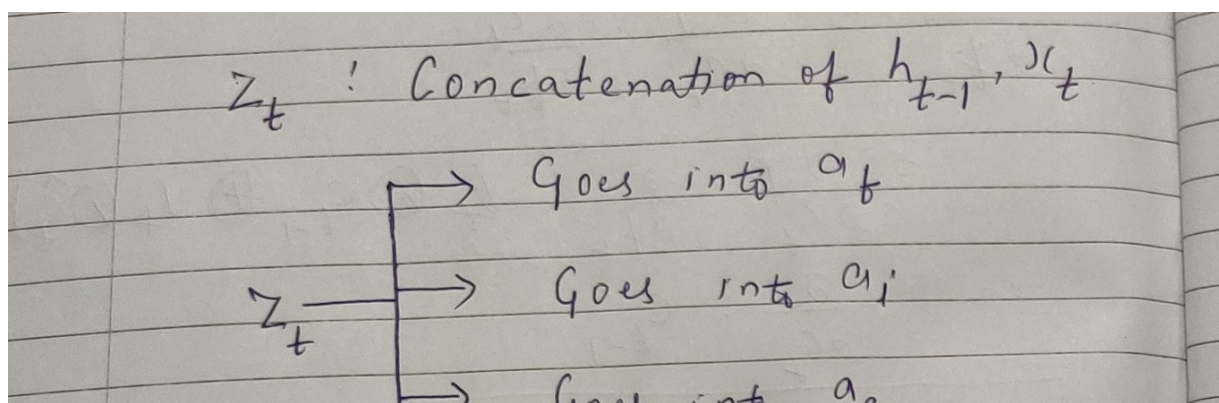 Z_t : Concatenation of h_{t-1}, x_t
→ Goes into a_f
Z_t → Goes into a_i
→ Goes into